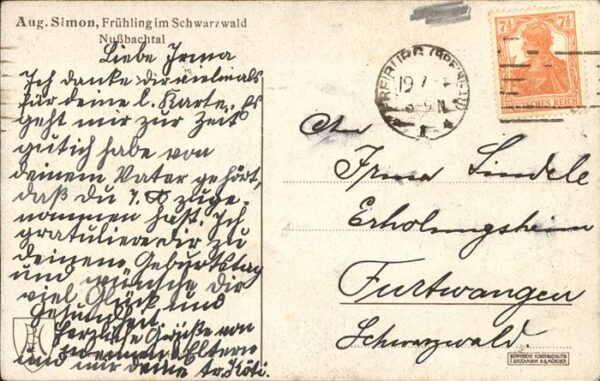 Aug. Simon, Frühling im Schwarzwald
Nußbachtal
Liebe Irma
Ich danke dir vielmals
für deine l. Karte. Es
geht mir zur Zeit
gut ich habe von
deinem Vater gehört,
daß du 7 ℔ zuge-
nommen hast. Ich
gratuliere dir zu
deinem Geburtstag
und wünsche dir
viel Glück und
Gesundheit
Herzliche Grüße von
meinen Eltern
und mir deine tr.
FREIBURG
7½ 7½
DEUTSCHES REICH
An
Irma Lindele
Erholungsheim
Furtwangen
Schwarzwald.
F. BRUCKMANN A.G. MÜNCHEN